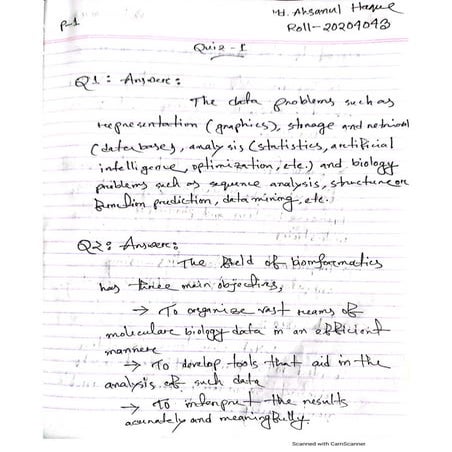 P-1
Md. Ahsanul Haque
Roll-20204043
Quiz-1
Q1: Answer:
The data problems such as
representation (graphics), storage and retrieval
(databases), analysis (statistics, artificial
intelligence, optimization, etc.) and biology
problems such as sequence analysis, structure or
function prediction, data mining, etc.
Q2: Answer:
The field of bioinformatics
has three main objectives,
→ To organize vast reams of
molecular biology data in an efficient
manner
→ To develop tools that aid in the
analysis of such data
→ To interpret the results
accurately and meaningfully.
Scanned with CamScanner